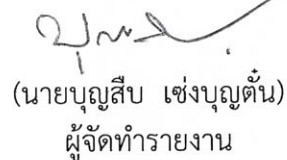 (นายบุญสืบ เซ่งบุญตั๋น)
ผู้จัดทำรายงาน